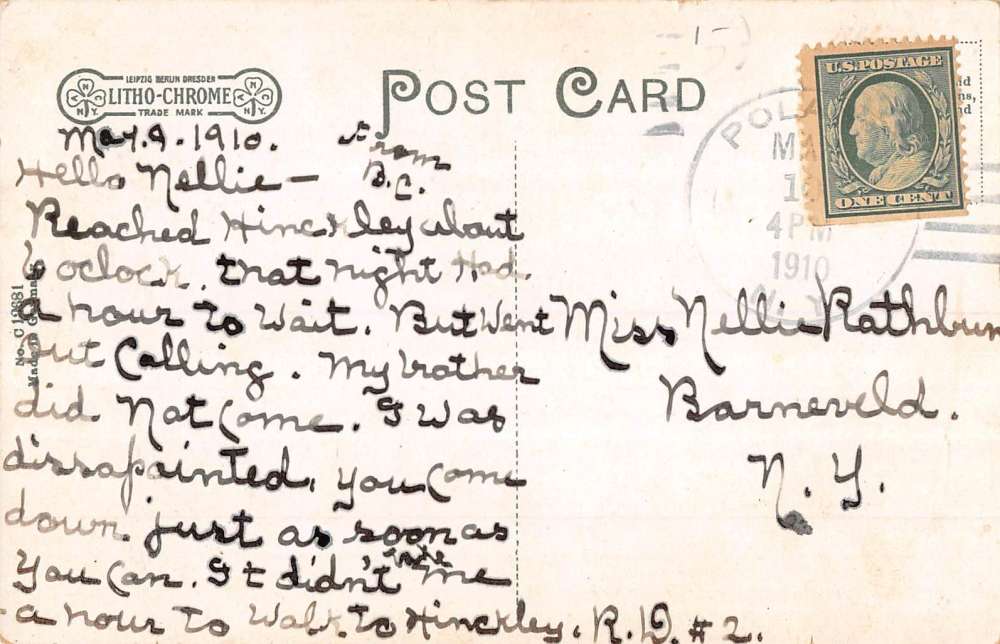 LEIPZIG BERLIN DRESDEN
LITHO-CHROME
TRADE MARK
ANC
N.Y.
POST CARD
U.S. POSTAGE
ONE CENT
POLA
MA
1
4 PM
1910
N.Y.
No. C 12881
Made in Germany
May. 9. 1910.
From
B.C.
Hello Nellie —
Reached Hinckley about
6 oclock. that night Had.
a hour to Wait. But Went
out Calling. My brother
did. Not Come. I was
dissapointed. You Come
down just as soon as
You Can. It didn't take me
a hour to Walk to Hinckley.
Miss Nellie Rathbun
Barneveld.
N. Y.
R.D. #2.